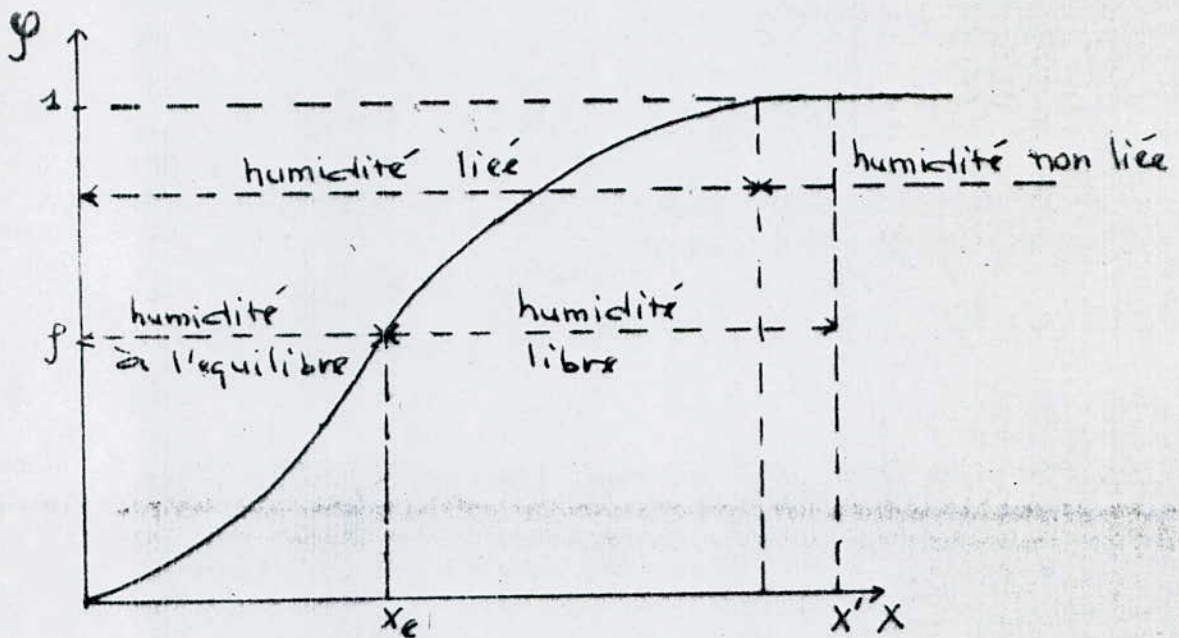 φ
1
humidité liée
humidité non liée
humidité
à l'equilibre
humidité
libre
φ
Xe
X' X